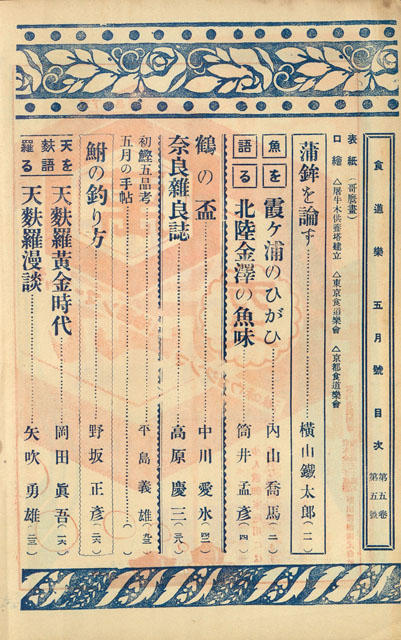 食道樂 五月號 目次 第五卷 第五號
表紙(哥麿畫)
口繪 △屠牛木供養塔建立 △東京食道樂會 △京都食道樂會
蒲鉾を論ず 橫山鐵太郎(一)
魚を語る
霞ヶ浦のひがひ 內山喬馬(二)
北陸金澤の魚味 筒井孟彥(四)
鶴の盃 中川愛氷
奈良雜良誌 高原慶三
初鰹五品考 平島義雄
五月の手帖
鮒の釣り方 野坂正彥
天麩羅を語る
天麩羅黃金時代 岡田眞吾
天麩羅漫談 矢吹勇雄